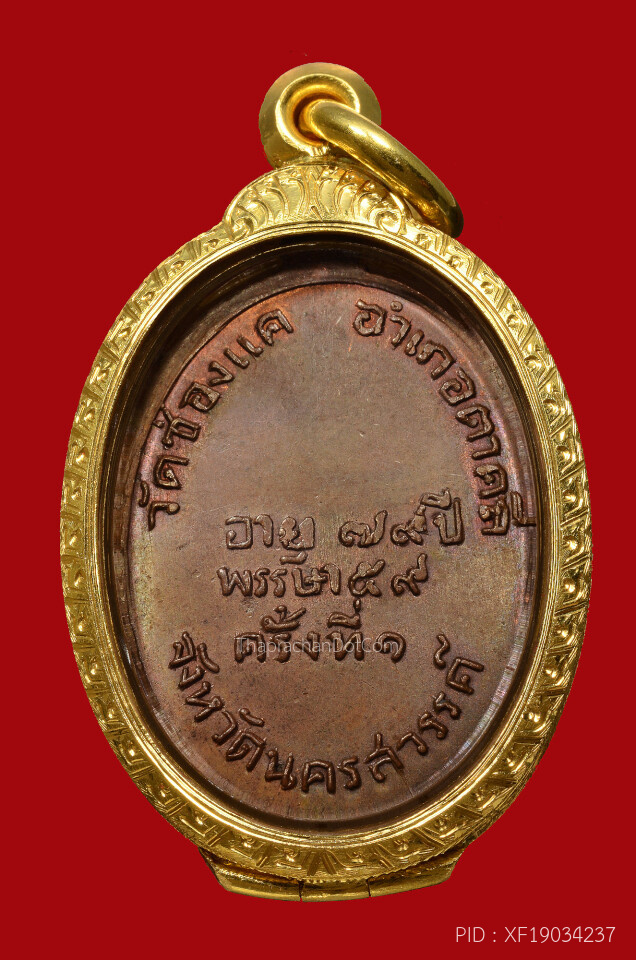 วัดช่องแค อำเภอตาคลี
อายุ ๗๙ปี
พรรษา๕๙
ครั้งที่๑
จังหวัดนครสวรรค์
ThaprachanDotCom
PID : XF19034237